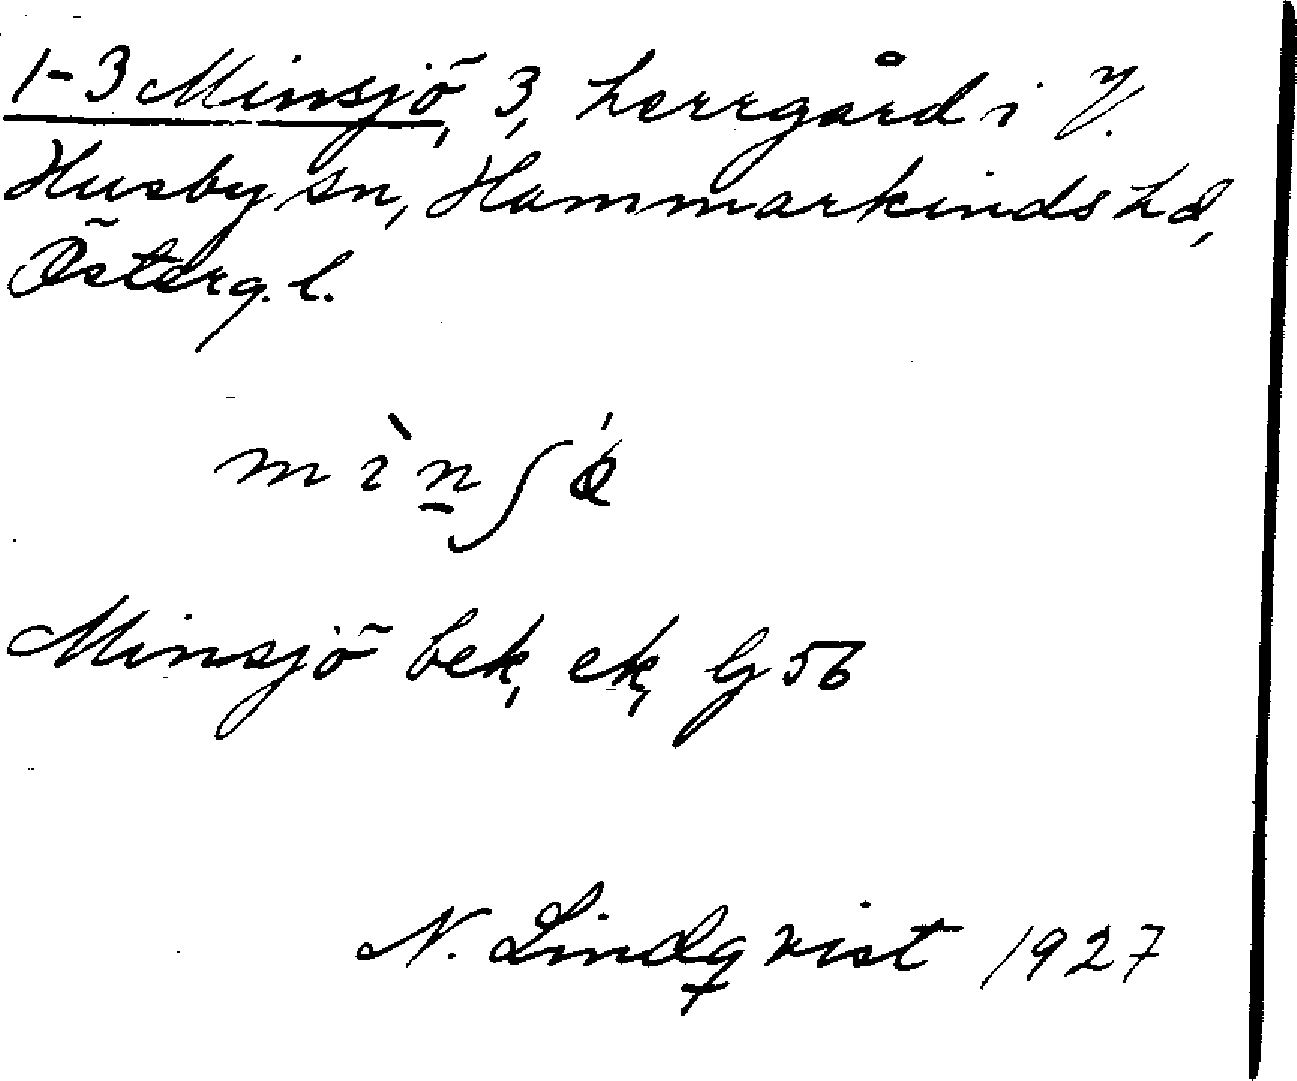 1-3 Minsjö, 3, herrgård i V.
Husby sn, Hammarkinds hd,
Österg. l.
mìnʃǿ
Minsjö bek, ek, G 56
N. Lindqvist 1927